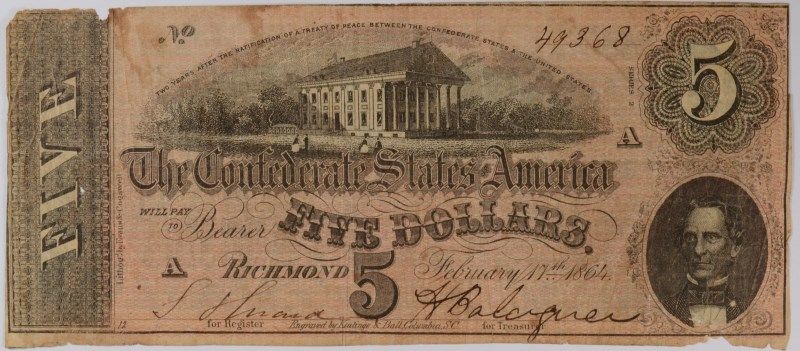 No.
49368
5
TWO YEARS AFTER THE RATIFICATION OF A TREATY OF PEACE BETWEEN THE CONFEDERATE STATES & THE UNITED STATES
SERIES 2
A
FIVE
The Confederate States of America
WILL PAY
TO Bearer FIVE DOLLARS.
A RICHMOND 5 February 17th 1864.
for Register Engraved by Keatinge & Ball, Columbia, S.C. for Treasurer
12